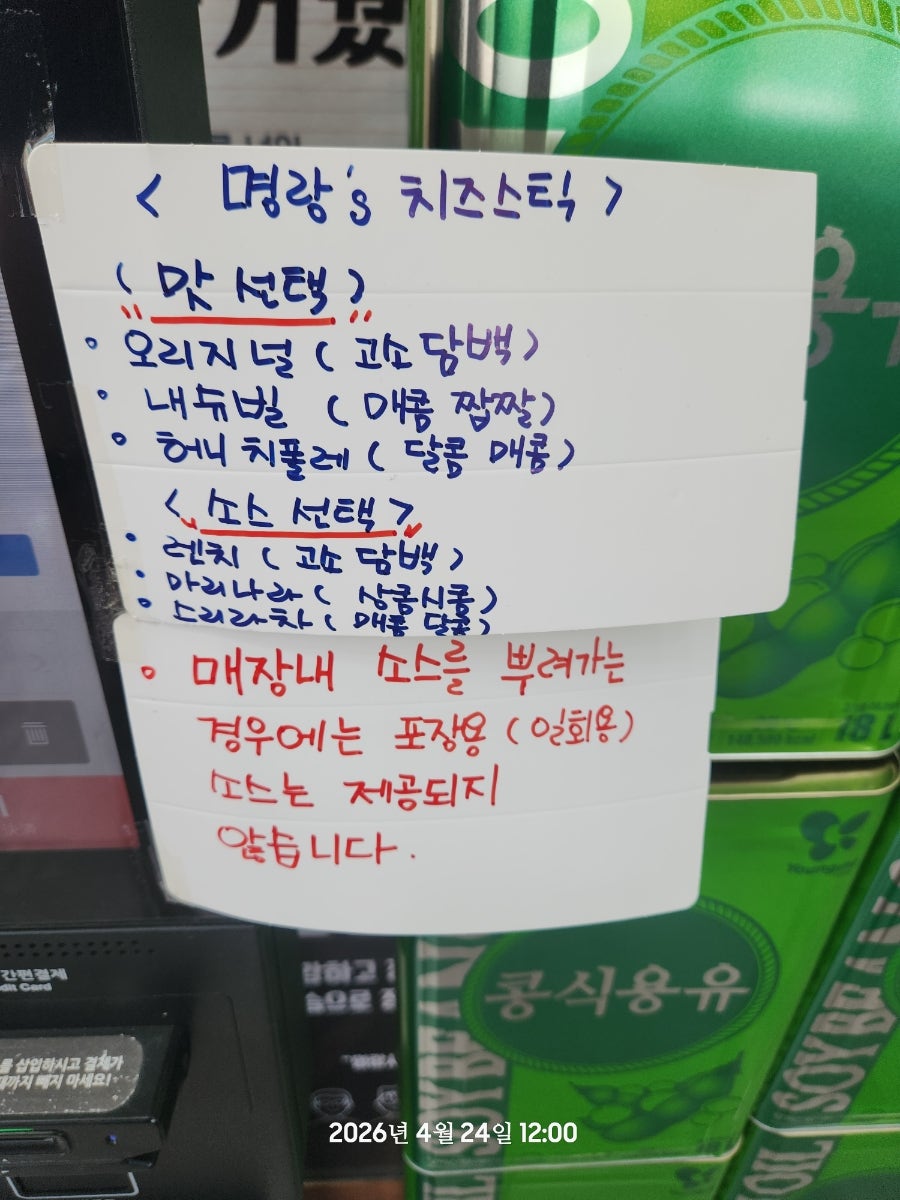 < 명랑's 치즈스틱 >
( 맛 선택 )
• 오리지널 ( 고소 담백 )
• 내슈빌 ( 매콤 짭짤 )
• 허니 치폴레 ( 달콤 매콤 )
< 소스 선택 >
• 렌치 ( 고소 담백 )
• 마리나라 ( 상콤시콤 )
• 스리라차 ( 매콤 달콤 )
• 매장내 소스를 뿌려가는
경우에는 포장용 (일회용)
소스는 제공되지
않습니다.
간편결제
dit Card
를 삽입하시고 결제가
때까지 빼지 마세요!
콩식용유
SOYBEAN
OIL SOYBEAN
2026년 4월 24일 12:00